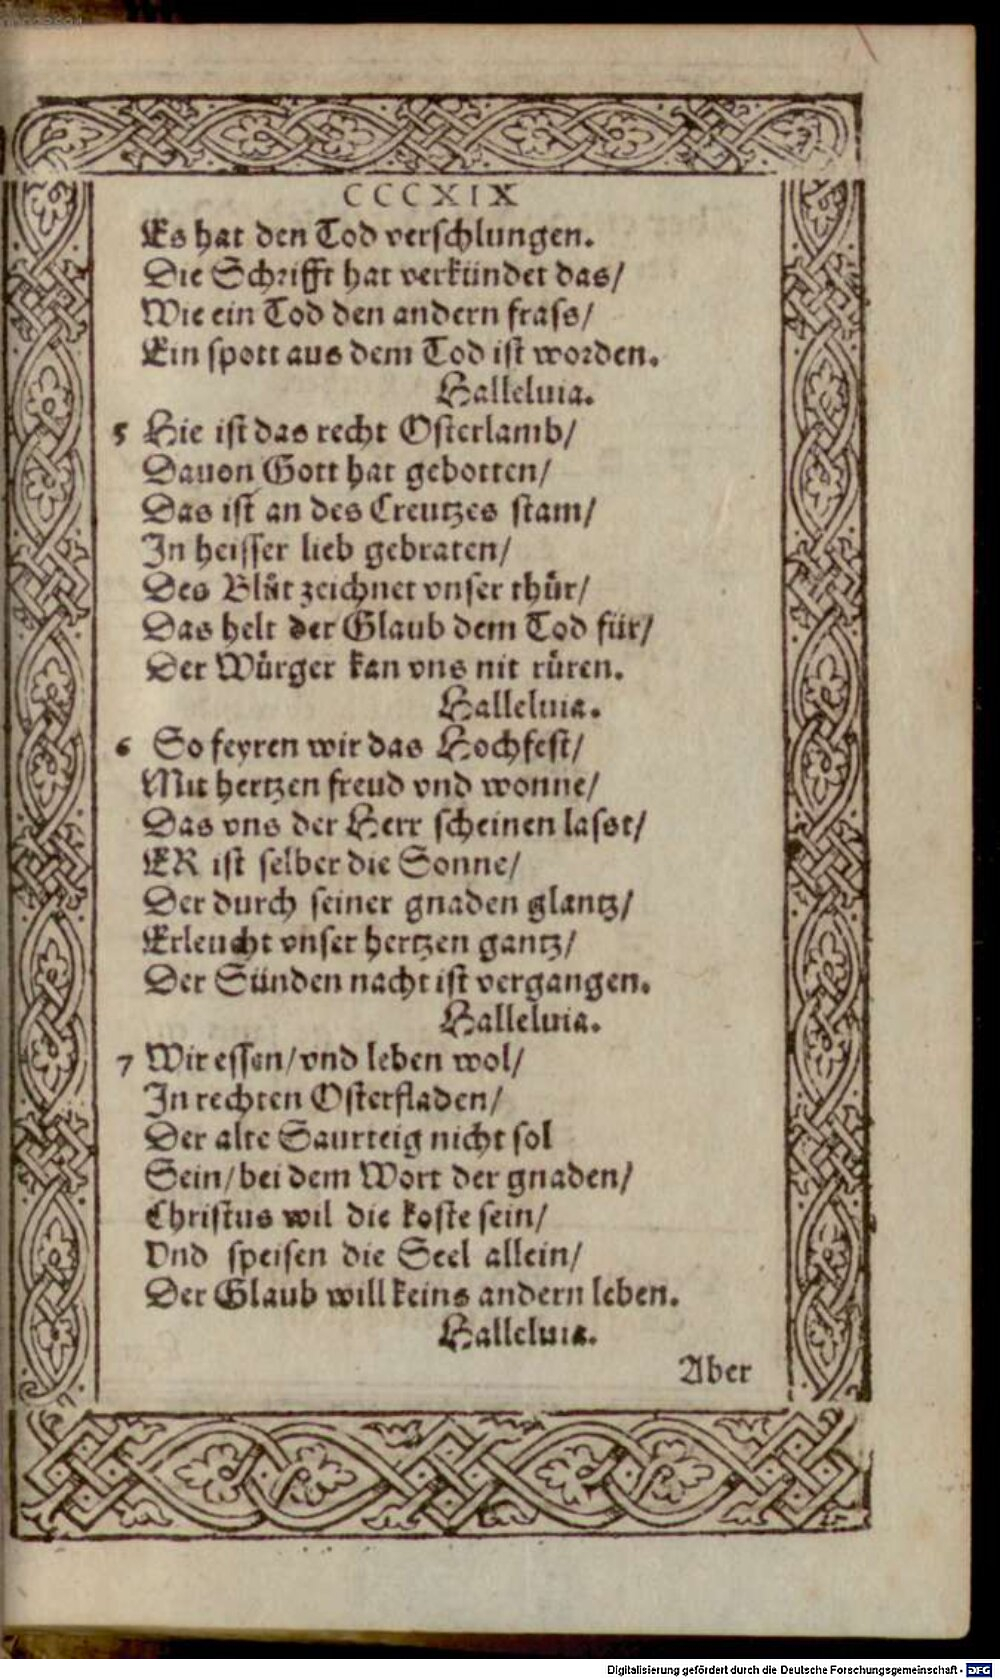 CCCXIX
Es hat den Tod verschlungen.
Die Schrifft hat verkündet das/
Wie ein Tod den andern frass/
Ein spott aus dem Tod ist worden.
Halleluia.
5 Hie ist das recht Osterlamb/
Dauon Gott hat gebotten/
Das ist an des Creutzes stam/
In heisser lieb gebraten/
Des Blůt zeichnet vnser thür/
Das helt der Glaub dem Tod für/
Der Würger kan vns nit rüren.
Halleluia.
6 So feyren wir das Hochfest/
Mit hertzen freud vnd wonne/
Das vns der Herr scheinen lasst/
ER ist selber die Sonne/
Der durch seiner gnaden glantz/
Erleucht vnser hertzen gantz/
Der Sünden nacht ist vergangen.
Halleluia.
7 Wir essen/vnd leben wol/
In rechten Osterfladen/
Der alte Saurteig nicht sol
Sein/bei dem Wort der gnaden/
Christus wil die koste sein/
Vnd speisen die Seel allein/
Der Glaub will keins andern leben.
Halleluia.
Aber
Digitalisierung gefördert durch die Deutsche Forschungsgemeinschaft - DFG